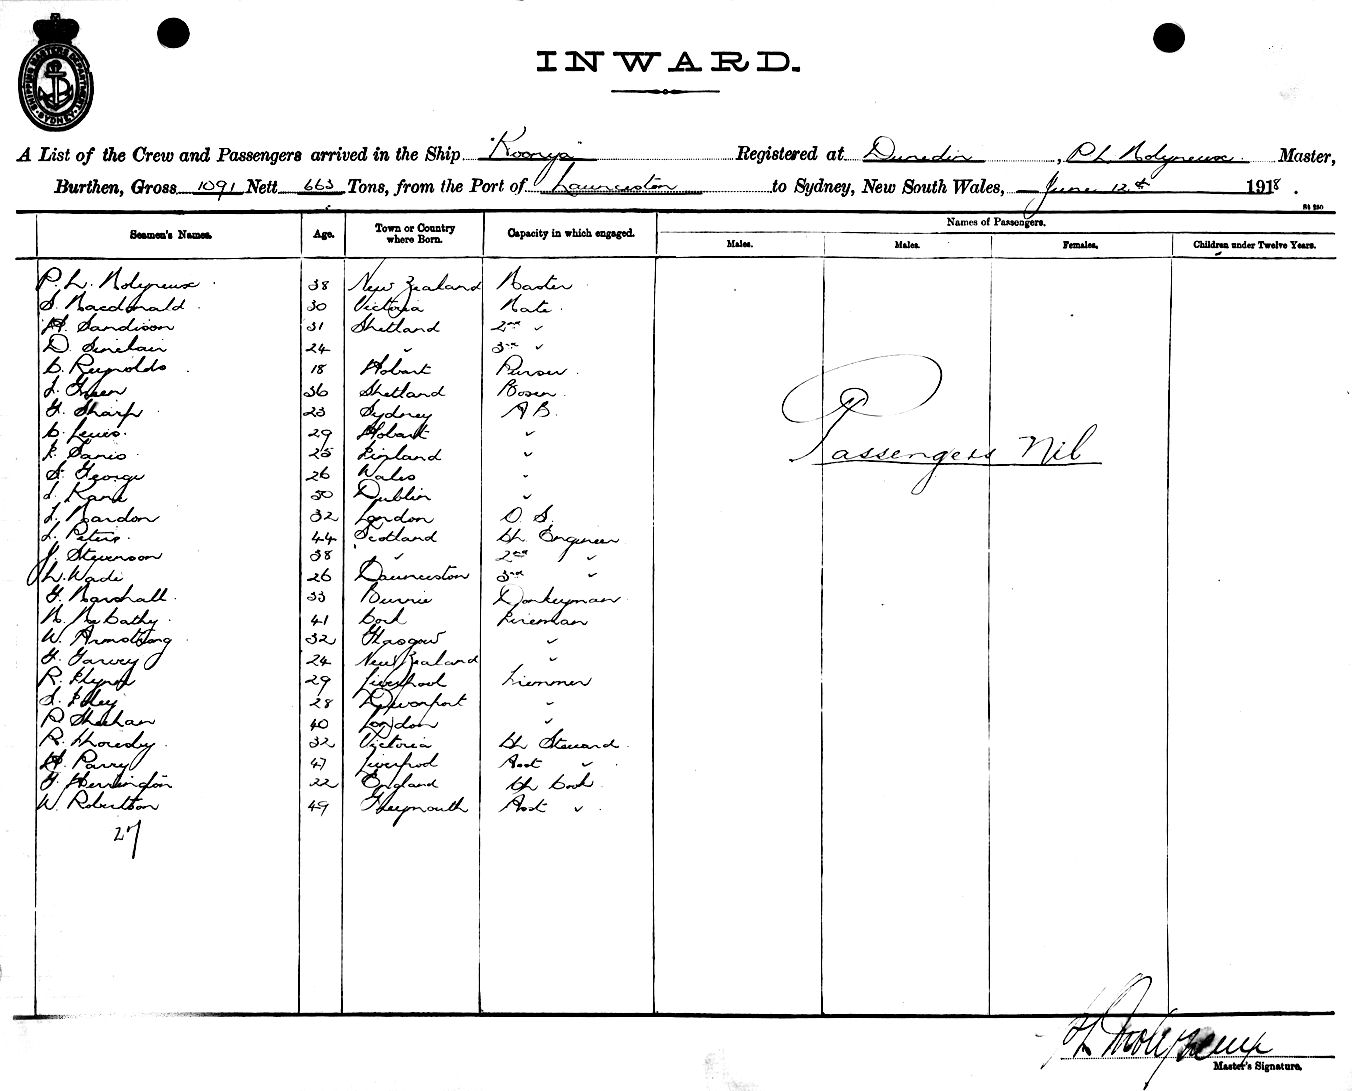 SHIPPING MASTERS DEPARTMENT SYDNEY
INWARD.
A List of the Crew and Passengers arrived in the Ship "Koonya Registered at Dunedin, P L Molyneux Master,
Burthen, Gross 1091 Nett 663 Tons, from the Port of Launceston to Sydney, New South Wales, June 12th 1918.
Seamen's Names. Age. Town or Country where Born. Capacity in which engaged. Names of Passengers.
Males. Males. Females. Children under Twelve Years.
P. L. Molyneux 38 New Zealand Master
S. Macdonald 30 Victoria Mate
H. Sandison 31 Shetland 2nd "
D. Sinclair 24 " 3rd "
C. Reynolds 18 Hobart Purser
J. Green 36 Shetland Bosun
G. Sharp 23 Sydney A B.
C. Lewis 29 Hobart "
Sario 25 Finland "
S. George 26 Wales "
J. Kane 30 Dublin "
Passengers Nil
J. Mardon 32 London O. S.
J. Peters 44 Scotland Ch Engineer
J. Stevenson 38 " 2nd "
L. Wade 26 Launceston 3rd "
G. Marshall 33 Burnie Donkeyman
M. McCathy 41 Cork Fireman
W. Armstrong 32 Glasgow "
G. Garvey 24 New Zealand "
R. 29 Liverpool Trimmer
28 Devonport "
P. Sheehan 40 London "
R. 32 Victoria Ch Steward
H. Parry 47 Liverpool Asst "
G. Herrington 22 England Ch Cook
W. Robertson 49 Greymouth Asst "
27
P L Molyneux
Master's Signature.